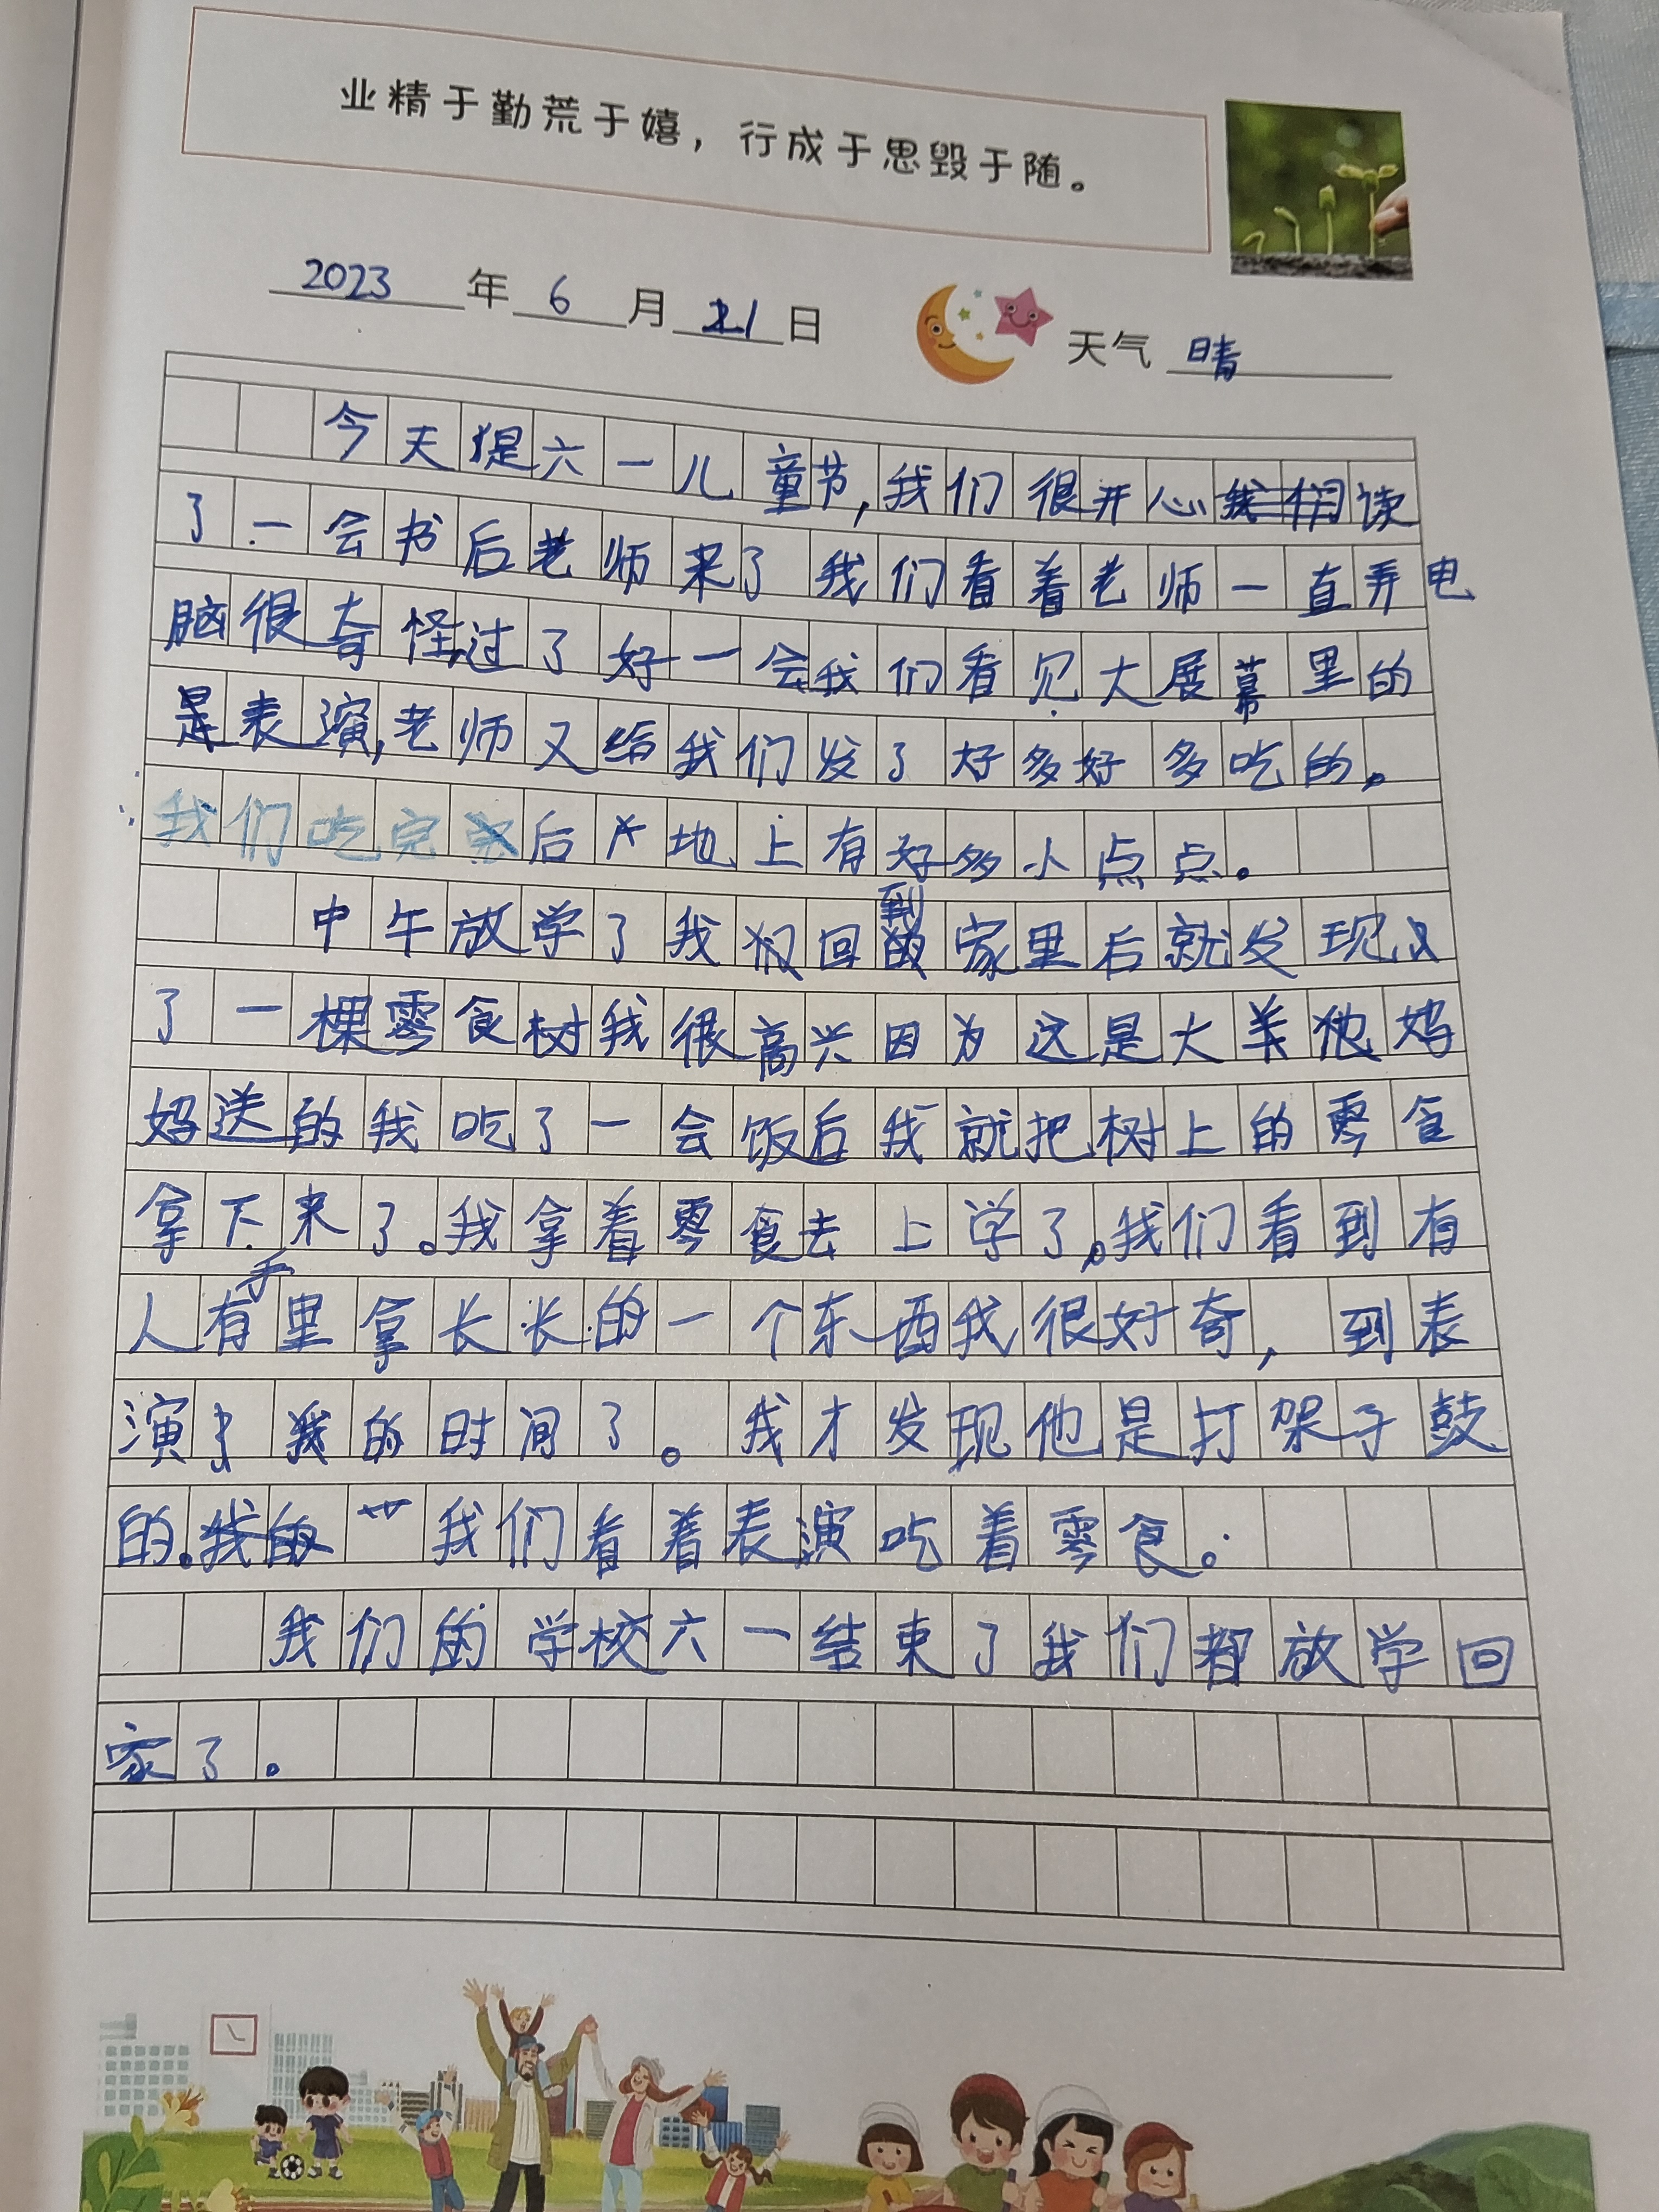 业精于勤荒于嬉，行成于思毁于随。
2023 年 6 月 21 日 天气 晴
今天是六一儿童节,我们很开心读
了一会书后老师来了我们看着老师一直弄电
脑很奇怪,过了好一会我们看见大展幕里的
是表演,老师又给我们发了好多好多吃的。
我们吃完后地上有好多小点点。
中午放学了我们回到家里后就发现
了一棵零食树我很高兴因为这是大羊他妈
妈送的我吃了一会饭后我就把树上的零食
拿下来了。我拿着零食去上学了。我们看到有
人有手里拿长长的一个东西我很好奇，到表
演我的时间了。我才发现他是打架子鼓
的。我们看着表演吃着零食。
我们的学校六一结束了我们都放学回
家了。